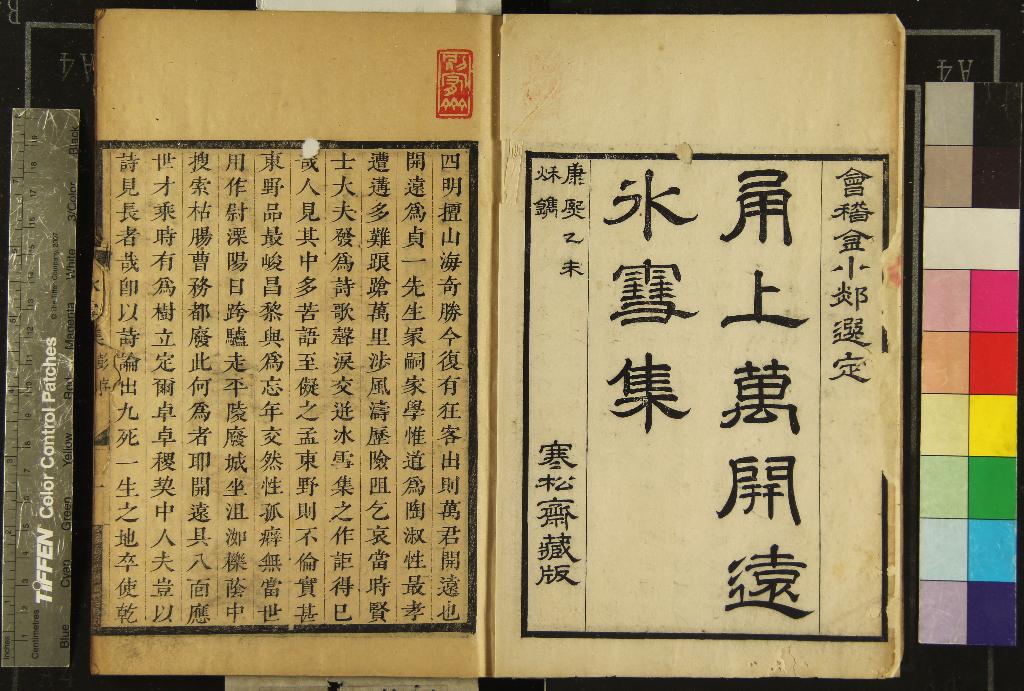 會稽金小郯選定
甬上萬開遠
氷雪集
康熙乙未
秌鐫
寒松齋藏版
四明擅山海奇勝今復有狂客出則萬君開遠也
開遠爲貞一先生冢嗣家學惟道爲陶淑性最孝
遭遘多難踉蹌萬里涉風濤歷險阻乞哀當時賢
士大夫發爲詩歌聲淚交迸冰雪集之作詎得已
哉人見其中多苦語至儗之孟東野則不倫實甚
東野品最峻昌黎與爲忘年交然性孤癖無當世
用作尉溧陽日跨驢走平陵廢城坐沮洳櫟蔭中
搜索枯腸曹務都廢此何爲者耶開遠具八面應
世才乘時有爲樹立定爾卓卓稷契中人夫豈以
詩見長者哉卽以詩論出九死一生之地卒使乾
集
彭序
一
TIFFEN Color Control Patches
Centimetres
Inches
Blue
Cyan
Green
Yellow
Red
Magenta
White
3/Color
Black
A4
A4